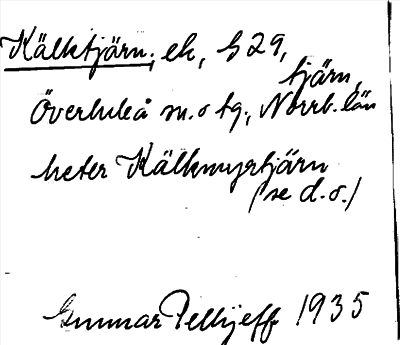 Kälktjärn, ek, 529,
tjärn,
Överluleå sn. o tg., Norrb. län
heter Kälkmyrtjärn
(se d. o.)
Gunnar Pellijeff 1935